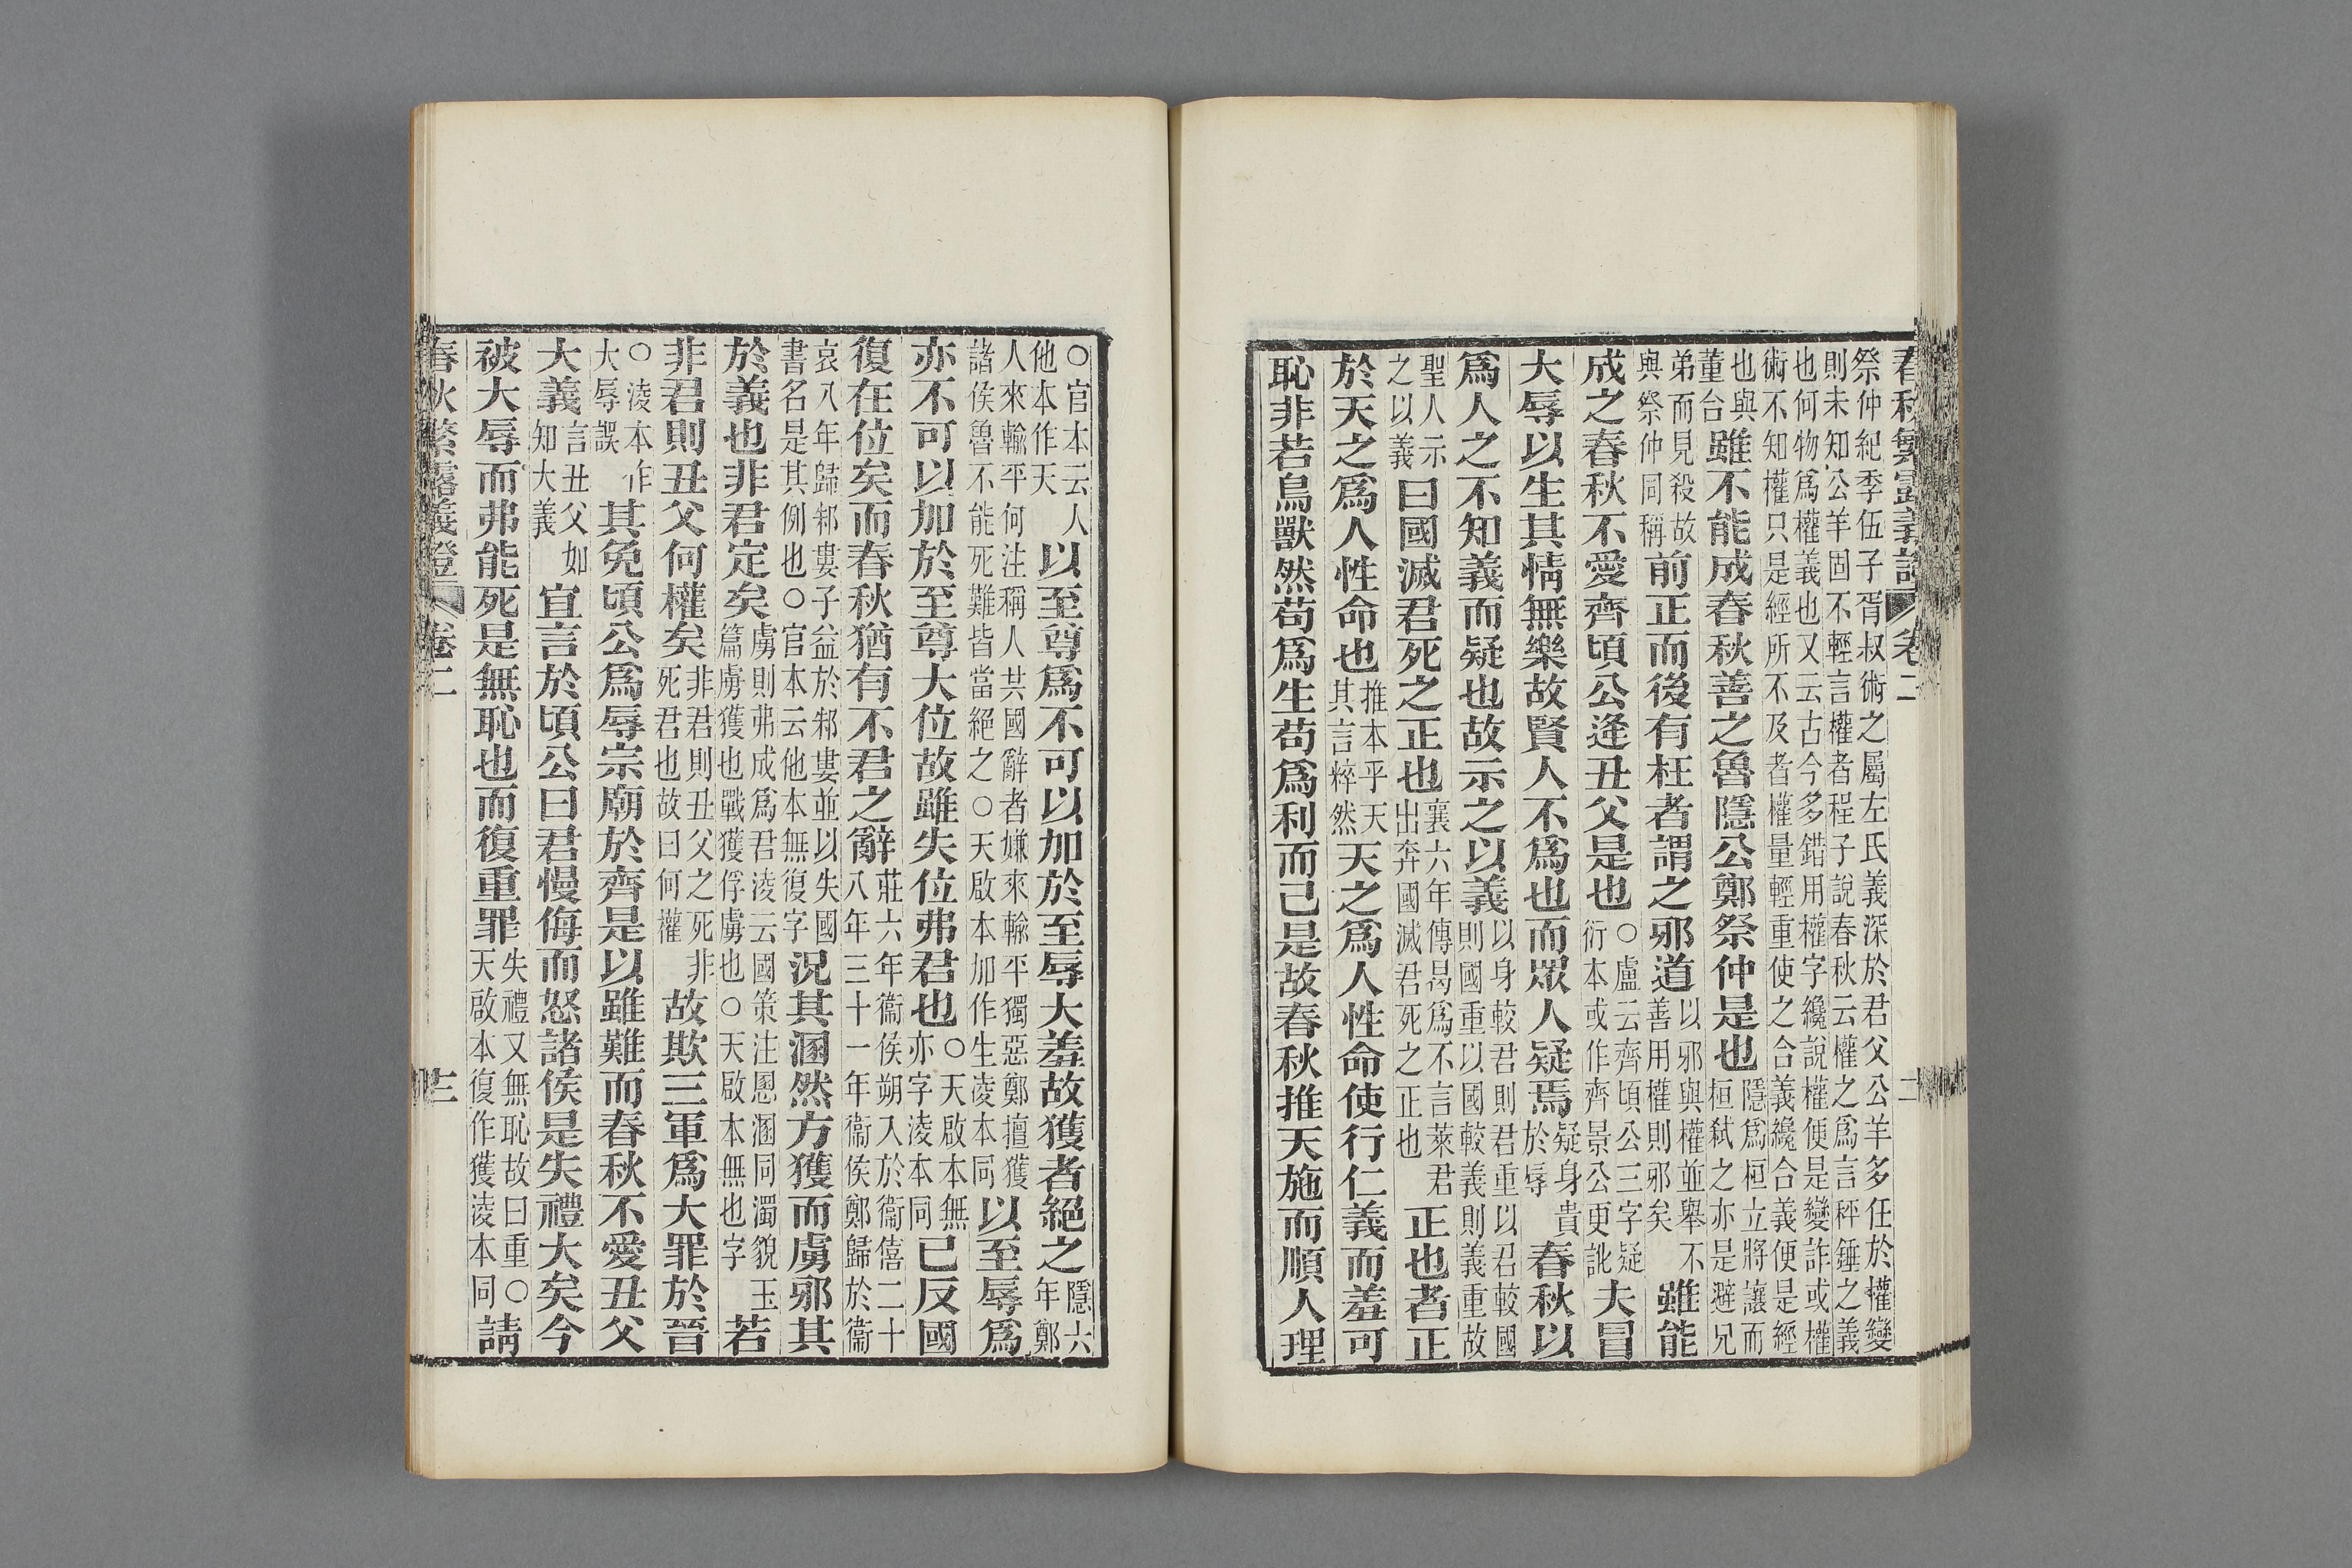 春秋繁露義證 卷二 二
祭仲紀季伍子胥叔術之屬左氏義深於君父公羊多任於權變
則未知公羊固不輕言權者程子說春秋云權之爲言秤錘之義
也何物爲權義也又云古今多錯用權字纔說權便是變詐或權
術不知權只是經所不及者權量輕重使之合義纔合義便是經
也與董合雖不能成春秋善之魯隱公鄭祭仲是也隱爲桓立將讓而桓弒之亦是避兄
弟而見殺故與祭仲同稱前正而後有枉者謂之邪道以邪與權並舉不善用權則邪矣雖能
成之春秋不愛齊頃公逢丑父是也○盧云齊頃公三字疑衍本或作齊景公更訛夫冒
大辱以生其情無樂故賢人不爲也而眾人疑焉疑身貴於辱春秋以
爲人之不知義而疑也故示之以義以身較君則君重以君較國則國重以國較義則義重故
聖人示之以義曰國滅君死之正也襄六年傳曷爲不言萊君出奔國滅君死之正也正也者正
於天之爲人性命也推本乎天其言粹然天之爲人性命使行仁義而羞可
恥非若鳥獸然苟爲生苟爲利而已是故春秋推天施而順人理
○官本云人他本作天以至尊爲不可以加於至辱大羞故獲者絕之隱六年鄭
人來輸平何注稱人共國辭者嫌來輸平獨惡鄭擅獲諸侯魯不能死難皆當絕之○天啟本加作生淩本同以至辱爲
亦不可以加於至尊大位故雖失位弗君也○天啟本無亦字淩本同已反國
復在位矣而春秋猶有不君之辭莊六年衞侯朔入於衞僖二十八年三十一年衞侯鄭歸於衞
哀八年歸邾婁子益於邾婁並以失國書名是其例也○官本云他本無復字況其溷然方獲而虜邪其
於義也非君定矣虜則弗成爲君淩云國策注慁溷同濁貌玉篇虜獲也戰獲俘虜也○天啟本無也字若
非君則丑父何權矣非君則丑父之死非死君也故曰何權故欺三軍爲大罪於晉
○淩本作大辱誤其免頃公爲辱宗廟於齊是以雖難而春秋不愛丑父
大義言丑父如知大義宜言於頃公曰君慢侮而怒諸侯是失禮大矣今
被大辱而弗能死是無恥也而復重罪失禮又無恥故曰重○天啟本復作獲淩本同請
春秋繁露義證 卷二 三